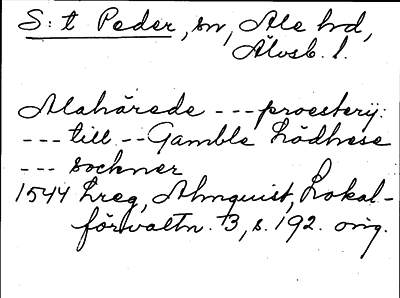 S:t Peder, sn, Ale hd,
Älvsb. l.
Alahärede --- proesterij:
--- till -- Gamble Lödhese
--- sockner
1544 Lreg, Almquist, Lokal-
förvaltn. 3, s. 192. orig.